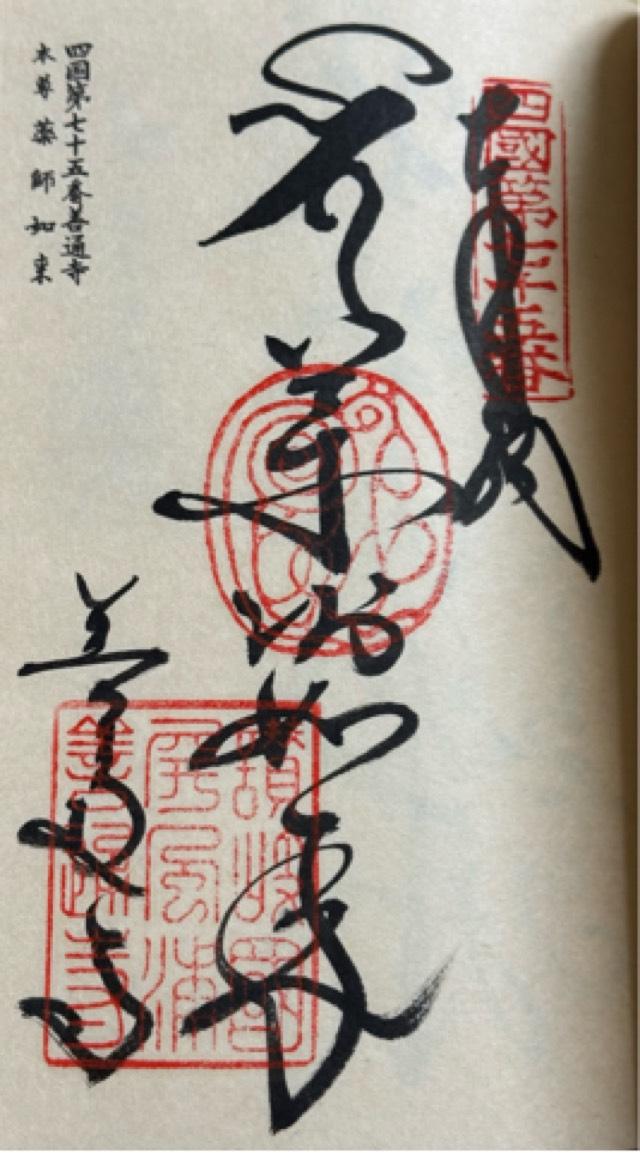 四國第七十五番
奉納
薬師如来
讃岐國
屏風浦
善通寺
善通寺
四国第七十五番善通寺
本尊 薬師如来